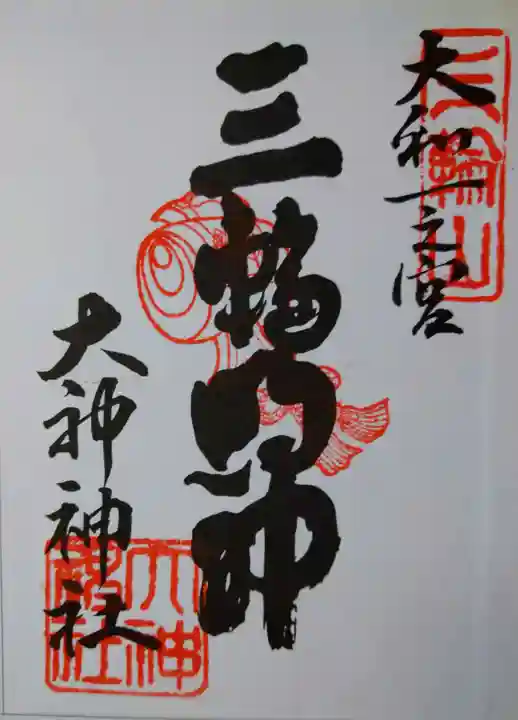 三輪山
大和一之宮
三輪明神
大神神社
大神神社